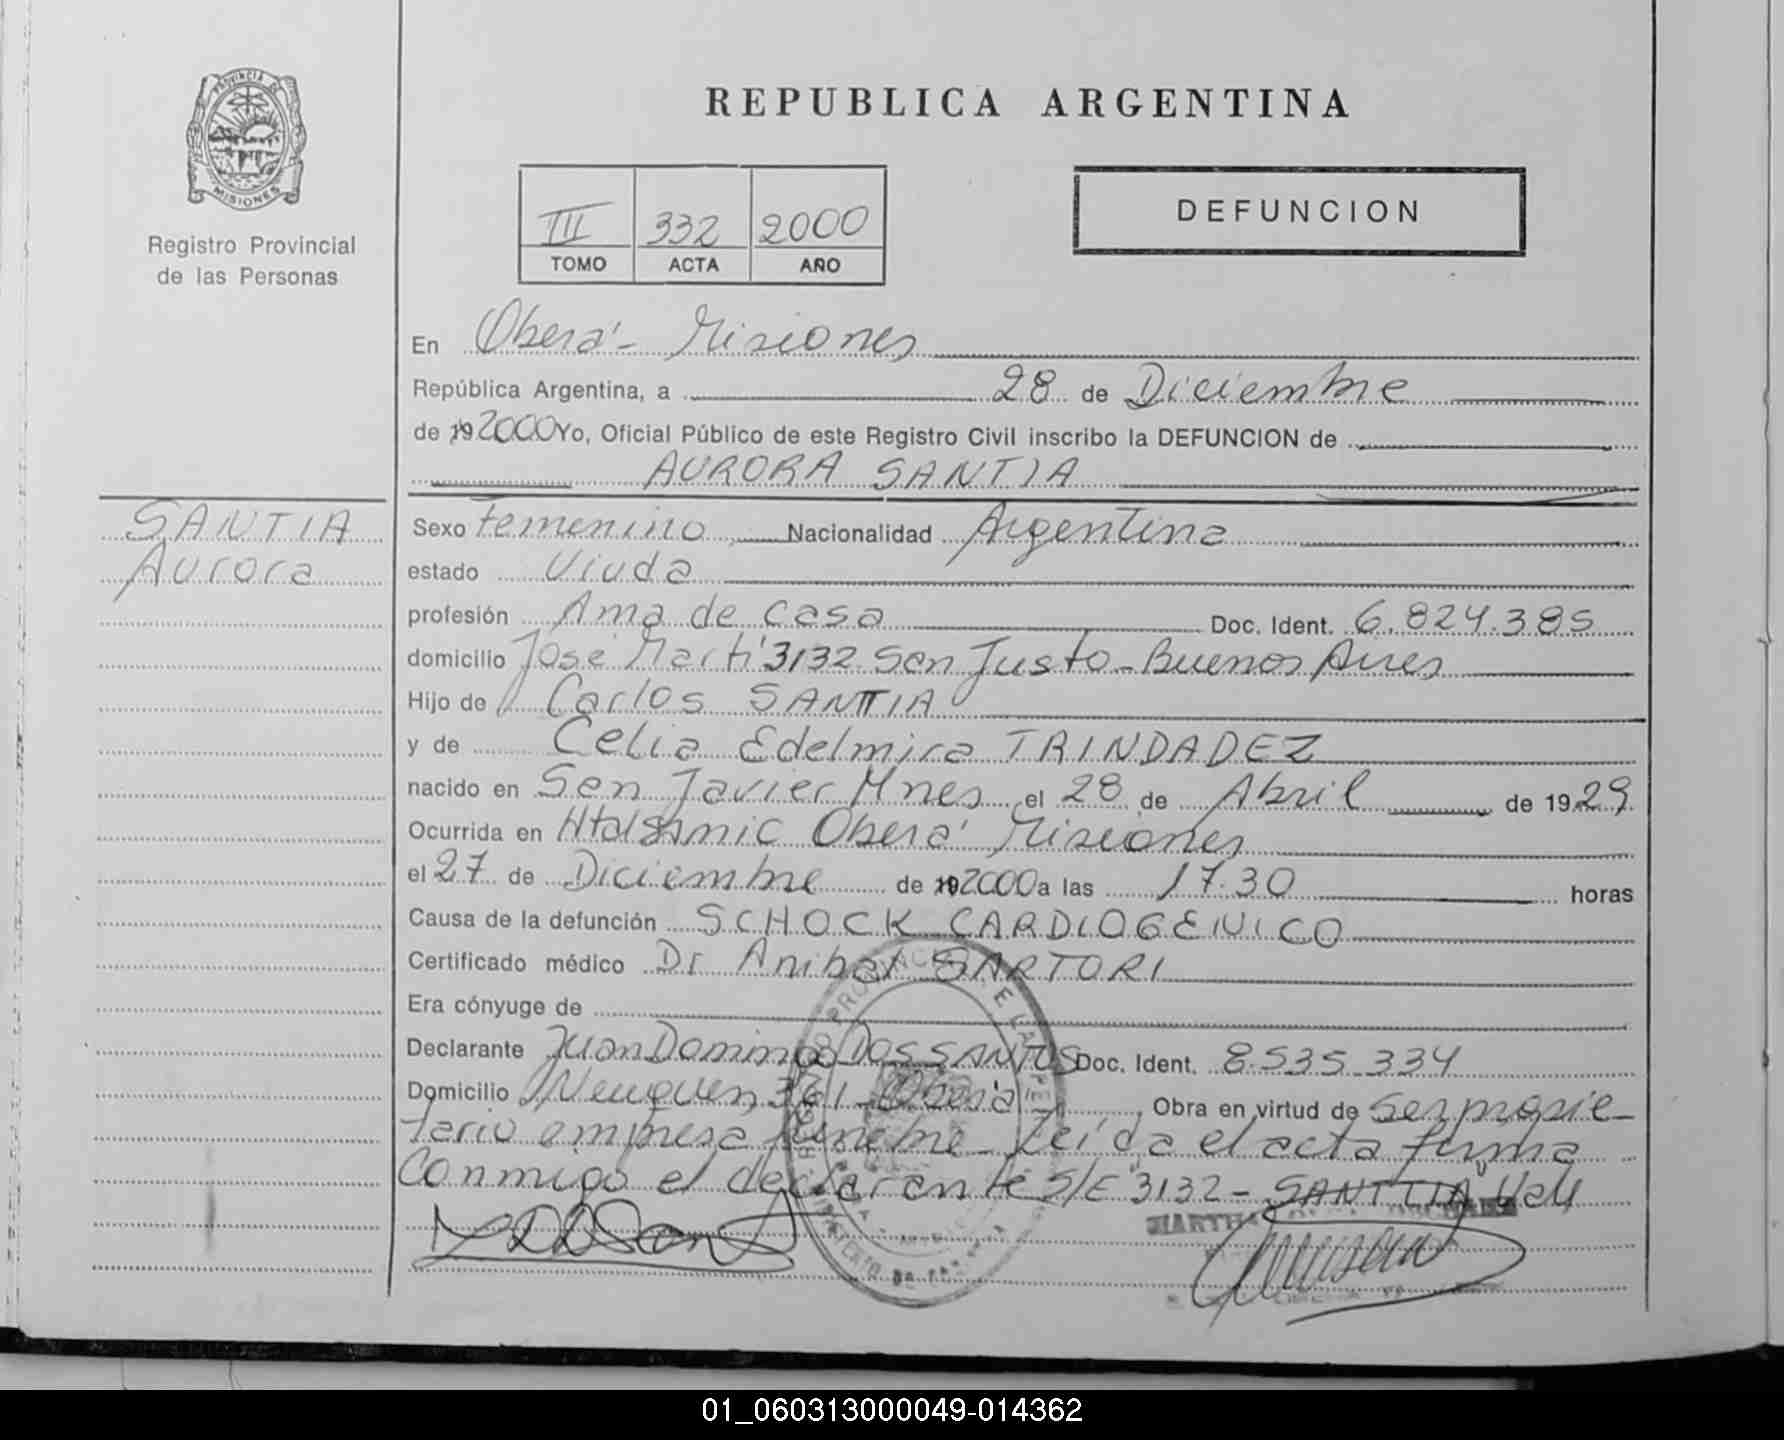 PROVINCIA DE
MISIONES
Registro Provincial
de las Personas
REPUBLICA ARGENTINA
III 332 2000
TOMO ACTA AÑO
DEFUNCION
En Oberá - Misiones
República Argentina, a 28 de Diciembre
de 192000 Yo, Oficial Público de este Registro Civil inscribo la DEFUNCION de
AURORA SANTIA
SANTIA
Aurora
Sexo Femenino Nacionalidad Argentina
estado Viuda
profesión Ama de casa Doc. Ident. 6.824.385
domicilio José Martí 3132 San Justo - Buenos Aires
Hijo de Carlos SANTTIA
y de Celia Edelmira TRINDADEZ
nacido en San Javier Mnes el 28 de Abril de 1929
Ocurrida en Oberá Misiones
el 27 de Diciembre de 192000 a las 17.30 horas
Causa de la defunción SCHOCK CARDIOGENICO
Certificado médico Dr Anibal SARTORI
Era cónyuge de
Declarante Juan Domingo DOS SANTOS Doc. Ident. 8.535.334
Domicilio Neuquen 361 - Oberá Obra en virtud de ser propie-
tario empresa funebre - Leída el acta firma
Conmigo el declarante S/E "3132 - SANTTIA Vale
01_060313000049-014362